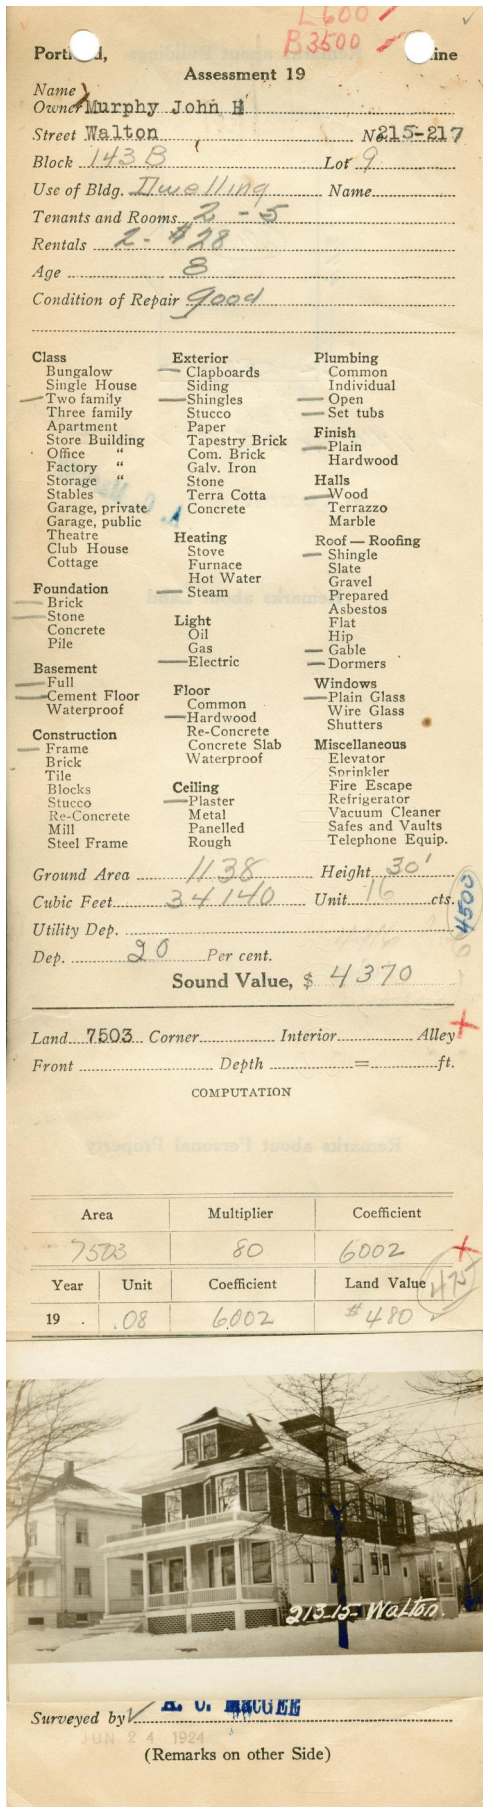 L600
B3500
Portland, Maine
Assessment 19
Name
Owner Murphy John H
Street Walton No 215-217
Block 143 B Lot 9
Use of Bldg. Dwelling Name
Tenants and Rooms 2 - 5
Rentals 2 - $28
Age 8
Condition of Repair good
Class
Bungalow
Single House
Two family
Three family
Apartment
Store Building
Office "
Factory "
Storage "
Stables
Garage, private
Garage, public
Theatre
Club House
Cottage
Foundation
Brick
Stone
Concrete
Pile
Basement
Full
Cement Floor
Waterproof
Construction
Frame
Brick
Tile
Blocks
Stucco
Re-Concrete
Mill
Steel Frame
Exterior
Clapboards
Siding
Shingles
Stucco
Paper
Tapestry Brick
Com. Brick
Galv. Iron
Stone
Terra Cotta
Concrete
Heating
Stove
Furnace
Hot Water
Steam
Light
Oil
Gas
Electric
Floor
Common
Hardwood
Re-Concrete
Concrete Slab
Waterproof
Ceiling
Plaster
Metal
Panelled
Rough
Plumbing
Common
Individual
Open
Set tubs
Finish
Plain
Hardwood
Halls
Wood
Terrazzo
Marble
Roof — Roofing
Shingle
Slate
Gravel
Prepared
Asbestos
Flat
Hip
Gable
Dormers
Windows
Plain Glass
Wire Glass
Shutters
Miscellaneous
Elevator
Sprinkler
Fire Escape
Refrigerator
Vacuum Cleaner
Safes and Vaults
Telephone Equip.
Ground Area 1138 Height 30'
Cubic Feet 34140 Unit 16 cts.
4500
Utility Dep.
Dep. 20 Per cent.
Sound Value, $ 4370
Land 7503 Corner Interior Alley
Front Depth = ft.
COMPUTATION
Area Multiplier Coefficient
7503 80 6002
Year Unit Coefficient Land Value
475
19 . .08 6002 $480
213-15- Walton.
Surveyed by A. C. MACGEE
JUN 24 1924
(Remarks on other Side)